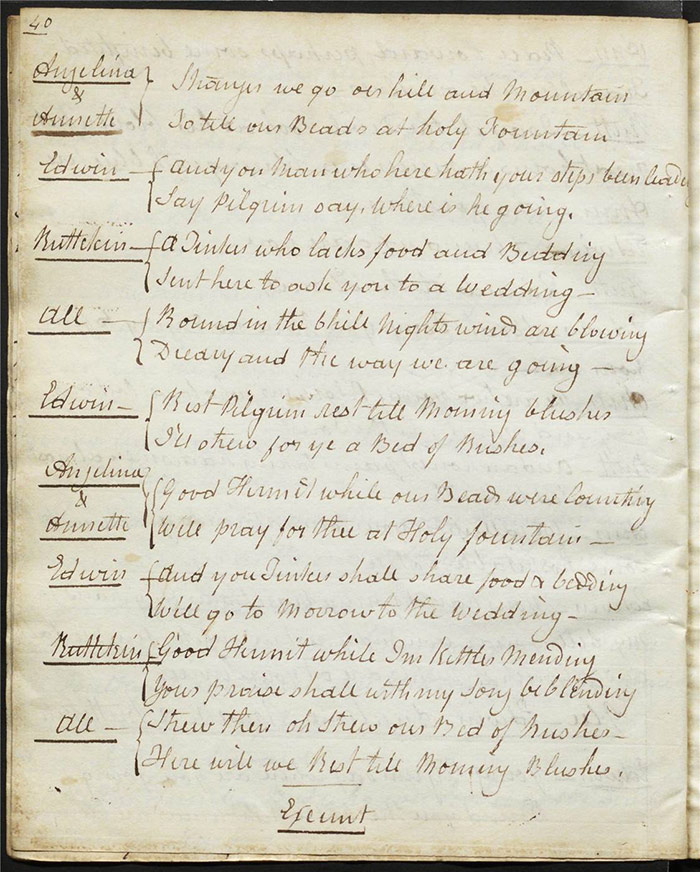 40
Angelina
&
Annette
Stranger we go oer hill and Mountain
To tell our Beads at holy Fountain
Edwin — and you Man who here hath your steps been leading
Say Pilgrim say, where is he going.
Ruttekin — A Tinker who lacks food and Bedding
Sent here to ask you to a Wedding —
All — Round in the Chill Nights winds are blowing
Dreary and the way we are going —
Edwin — Rest Pilgrim rest till Morning blushes
I'll strew for ye a Bed of Rushes.
Angelina
&
Annette
Good Hermit while our Beads were Counting
Will pray for thee at Holy fountain —
Edwin — and you Tinker shall share food & bedding
Will go to Morrow to the Wedding —
Ruttekin Good Hermit while Im Kettles Mending
Your praise shall with my Song be blending
All — Strew then oh Strew our Bed of Rushes —
Here will we Rest till Morning Blushes.
Exeunt